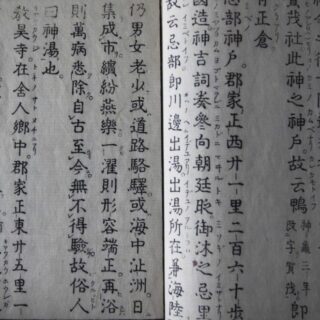 賀茂社此神之神戸故云鴨神龜三年改字賀茂即
正倉
忌部神戸郡家正西廿一里二百六十歩
國造神吉詞奏參向朝廷時御沐之忌里
故云忌部即川邊出湯出湯所在兼海陸
仍男女老少或道路駱驛或海中沚洲日
集成市繽紛燕樂一濯則形容端正再浴
則萬病悉除自古至今無不得驗故俗人
曰神湯也
敎昊寺在舍人鄉中郡家正東廿五里一